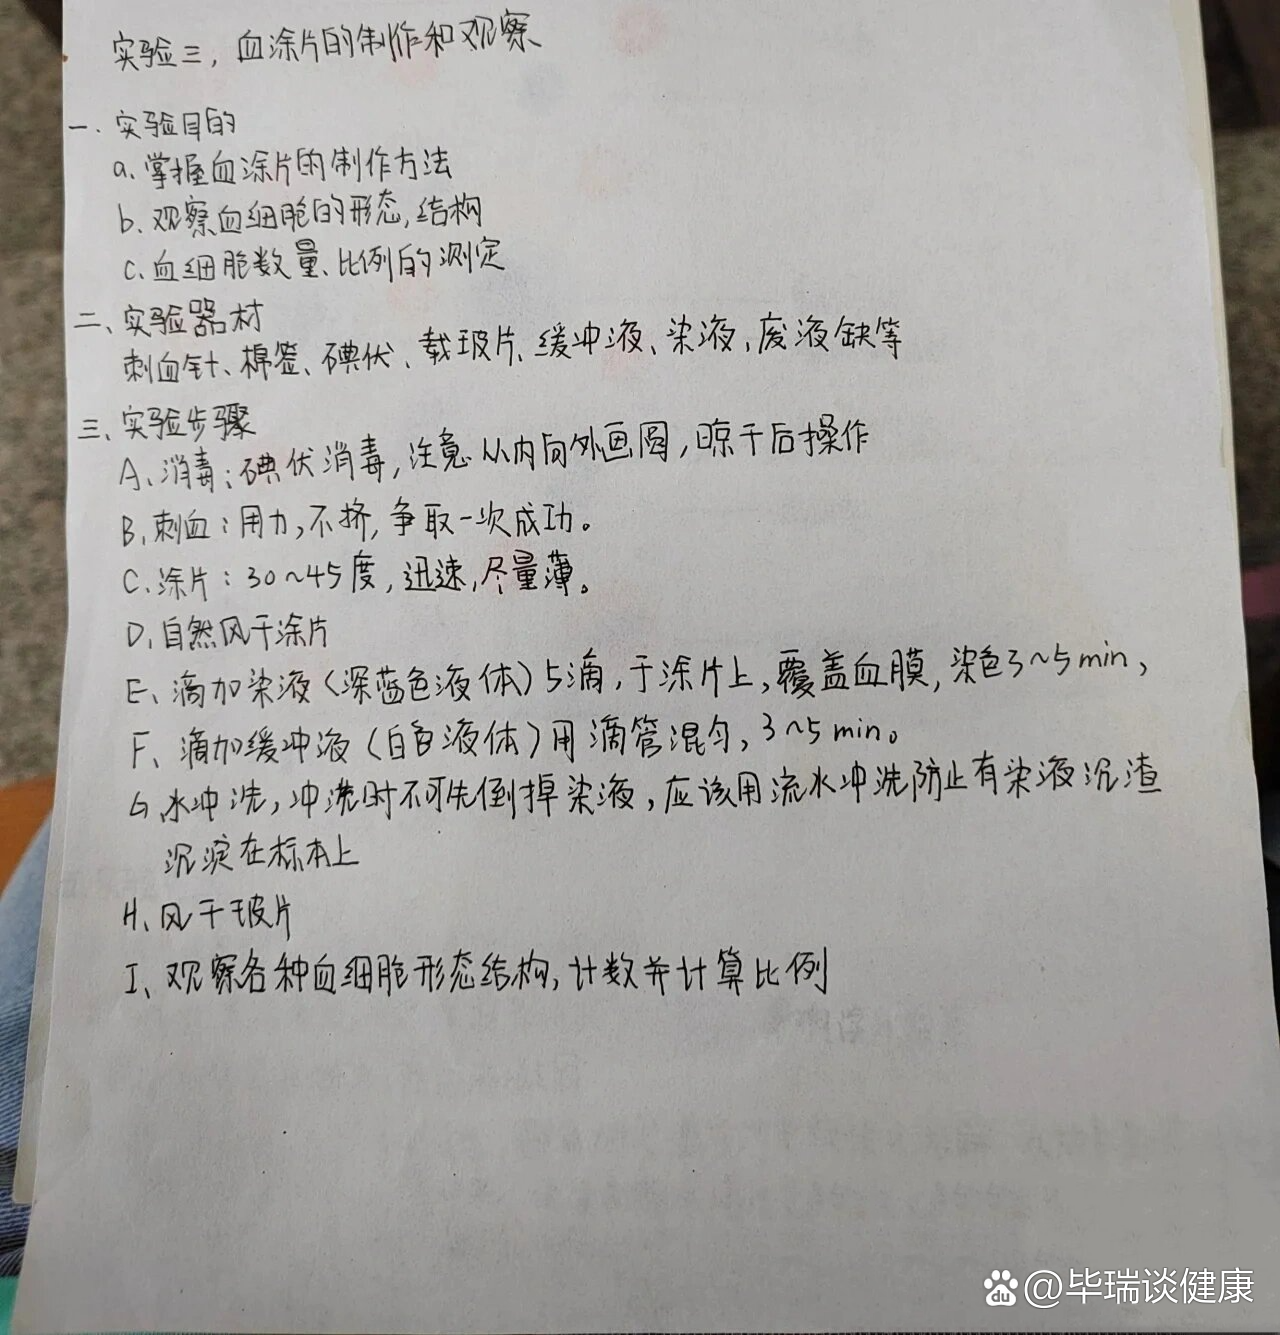 实验三，血涂片的制作和观察
一、实验目的
a.掌握血涂片的制作方法
b.观察血细胞的形态,结构
c.血细胞数量、比例的测定
二、实验器材
刺血针、棉签、碘伏、载玻片、缓冲液、染液、废液缸等
三、实验步骤
A、消毒：碘伏消毒，注意从内向外画圆，晾干后操作
B、刺血：用力,不挤,争取一次成功。
C、涂片：30~45度，迅速,尽量薄。
D、自然风干涂片
E、滴加染液（深蓝色液体）5滴,于涂片上，覆盖血膜，染色3~5min，
F、滴加缓冲液（白色液体）用滴管混匀，3~5min。
G、水冲洗，冲洗时不可先倒掉染液，应该用流水冲洗防止有染液沉渣
沉淀在标本上
H、风干玻片
I、观察各种血细胞形态结构,计数并计算比例
du @毕瑞谈健康